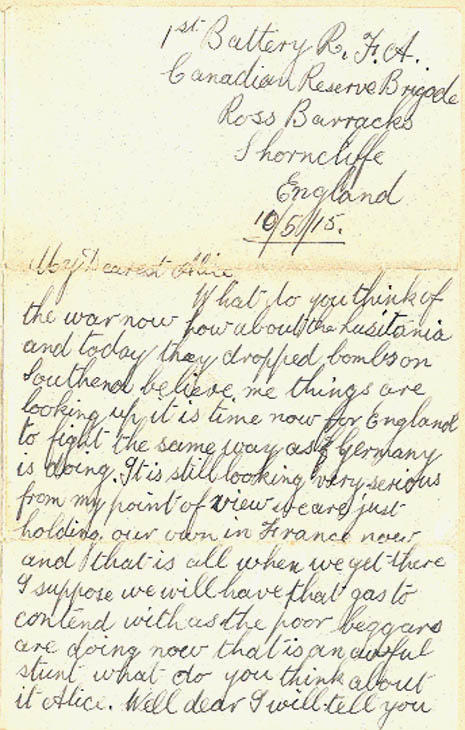 1st Battery R. F. A.
Canadian Reserve Brigade
Ross Barracks
Shorncliffe
England
10/5/15.
My Dearest Alice
What do you think of
the war now how about the Lusitania
and today they dropped bombs on
Southend believe me things are
looking up it is time now for England
to fight the same way as Germany
is doing. It is still looking very serious
from my point of view we are just
holding our own in France now
and that is all when we get there
I suppose we will have that gas to
contend with as the poor beggars
are doing now that is an awful
stunt what do you think about
it Alice. Well dear I will tell you